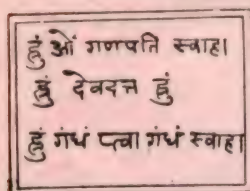 हुं ओं गणपति स्वाहा।
हुं देवदत्त हुं
हुं गंधं पत्वा गंधं स्वाहा